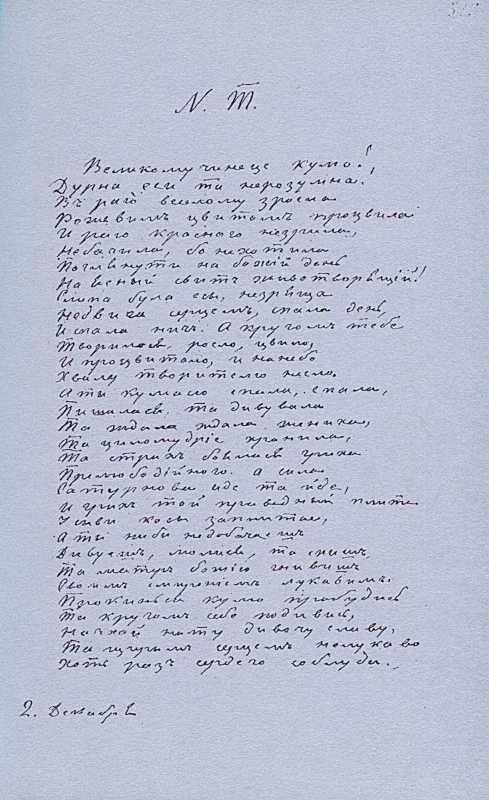 N. Т.
Великомученице кумо!
Дурна еси та нерозумна.
Въ раѣ веселому зросла
Рожевымъ цвитомъ процвила
И раю красного незрила,
Небачила, бо нехотила
Поглянути на божій день
На ясный свитъ животворящій!
Слипа була еси, незряща
Недвига серцемъ, спала день,
И спала ничъ. А кругомъ тебе
Творилось, росло, цвило,
И процвитало, и нанебо
Хвалу творителю несло.
А ты кумасю спала, спала,
Пишалася та дивувала
Та ждала ждала жениха,
Та циломудріе хранила,
Та страхъ боялась гриха
Прелюбодійного. А сила
Сатурнова иде та йде,
И грихъ той праведный плете
У сиви косы заплитае,
А ты ниби недобачаешъ
Дивуешъ, молисся, та спишъ
Та матиръ божію гнивишъ
Своимъ смиреніемъ лукавымъ.
Прокинься кумо пробудись
Та кругомъ себе подивись,
Начхай нату дивочу славу,
Та щирымъ серцемъ нелукаво
Хоть разъ сердего соблуди.
2. Декабря